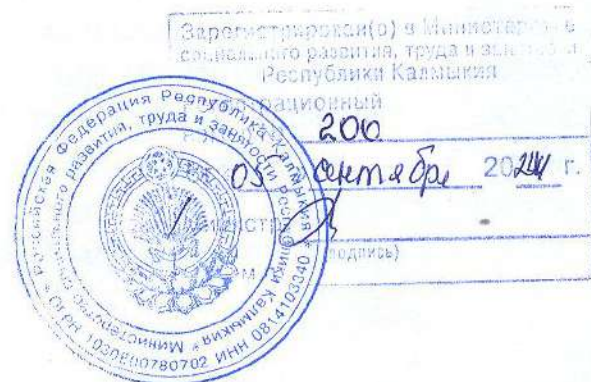 Зарегистрирован(о) в Министерстве
социального развития, труда и занятости
Республики Калмыкия
Регистрационный
200
05 сентября 20 г.
(подпись)
Российская Федерация Республика Калмыкия * Министерство социального развития, труда и занятости Республики Калмыкия *
ИНН 0814103340